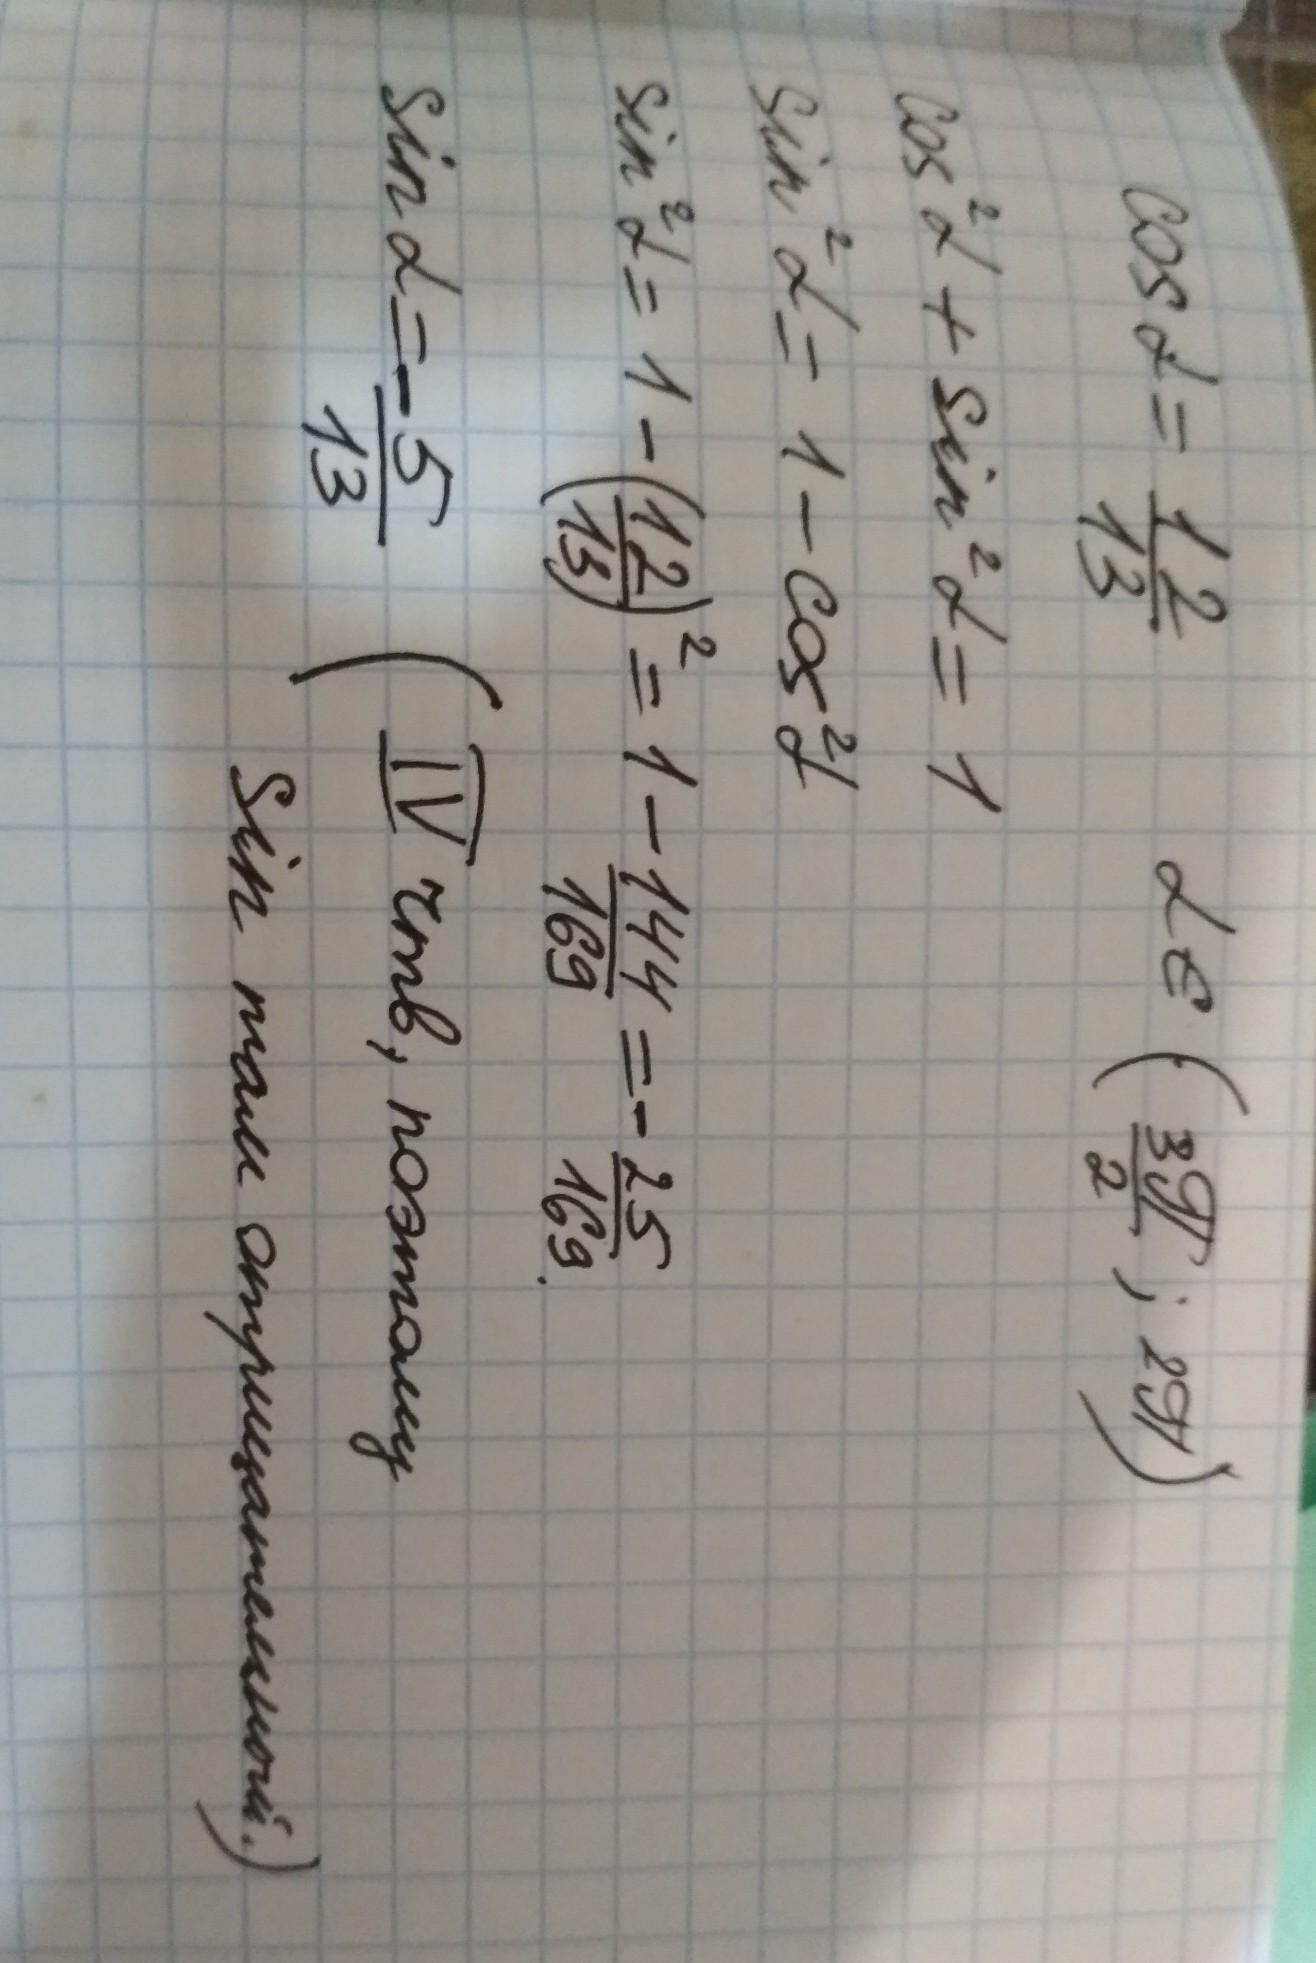 cos α = 12/13 α ∈ (3π/2; 2π)
cos²α + sin²α = 1
sin²α = 1 − cos²α
sin²α = 1 − (12/13)² = 1 − 144/169 = − 25/169.
sin α = − 5/13 (IV чтв, поэтому
sin там отрицательный.)